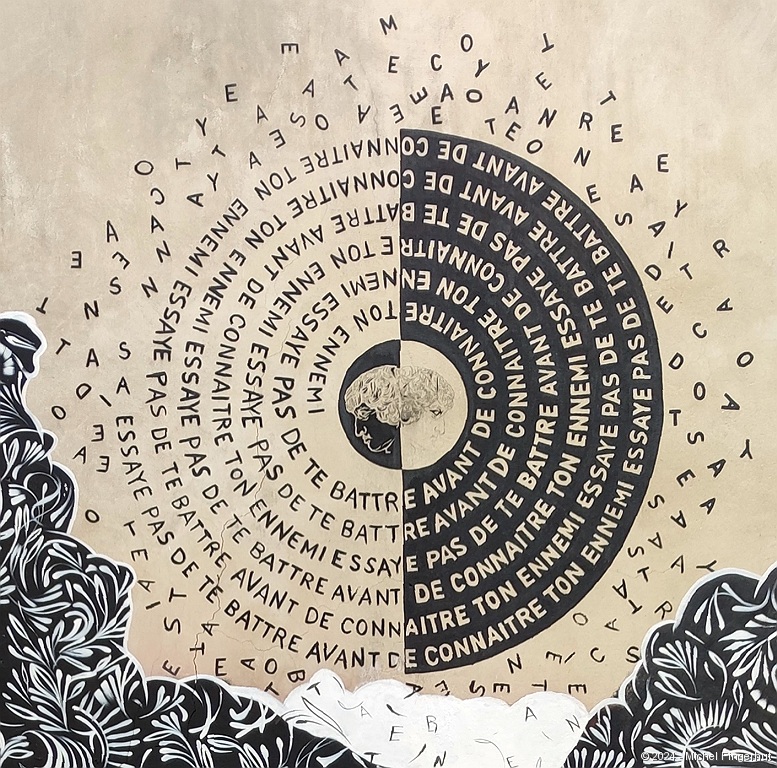 ESSAYE PAS DE TE BATTRE AVANT DE CONNAITRE TON ENNEMI
ESSAYE PAS DE TE BATTRE AVANT DE CONNAITRE TON ENNEMI
ESSAYE PAS DE TE BATTRE AVANT DE CONNAITRE TON ENNEMI
ESSAYE PAS DE TE BATTRE AVANT DE CONNAITRE TON ENNEMI
ESSAYE PAS DE TE BATTRE AVANT DE CONNAITRE TON ENNEMI
ESSAYE PAS DE TE BATTRE AVANT DE CONNAITRE TON ENNEMI
ESSAYE PAS DE TE BATTRE AVANT DE CONNAITRE TON ENNEMI
ESSAYE PAS DE TE BATTRE AVANT DE CONNAITRE TON ENNEMI
ESSAYE PAS DE TE BATTRE AVANT DE CONNAITRE TON ENNEMI
© 2024 - Michel Fingerhut